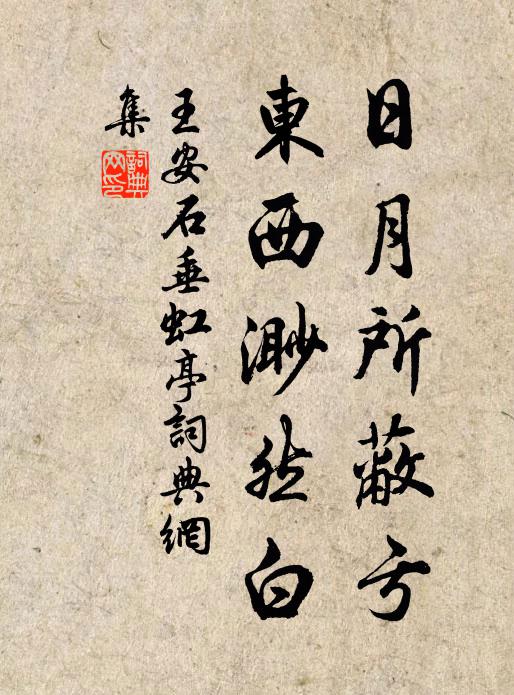 日月所蔽亏
東西渺然白
王安石垂虹亭詞典網
集
詞典
网印